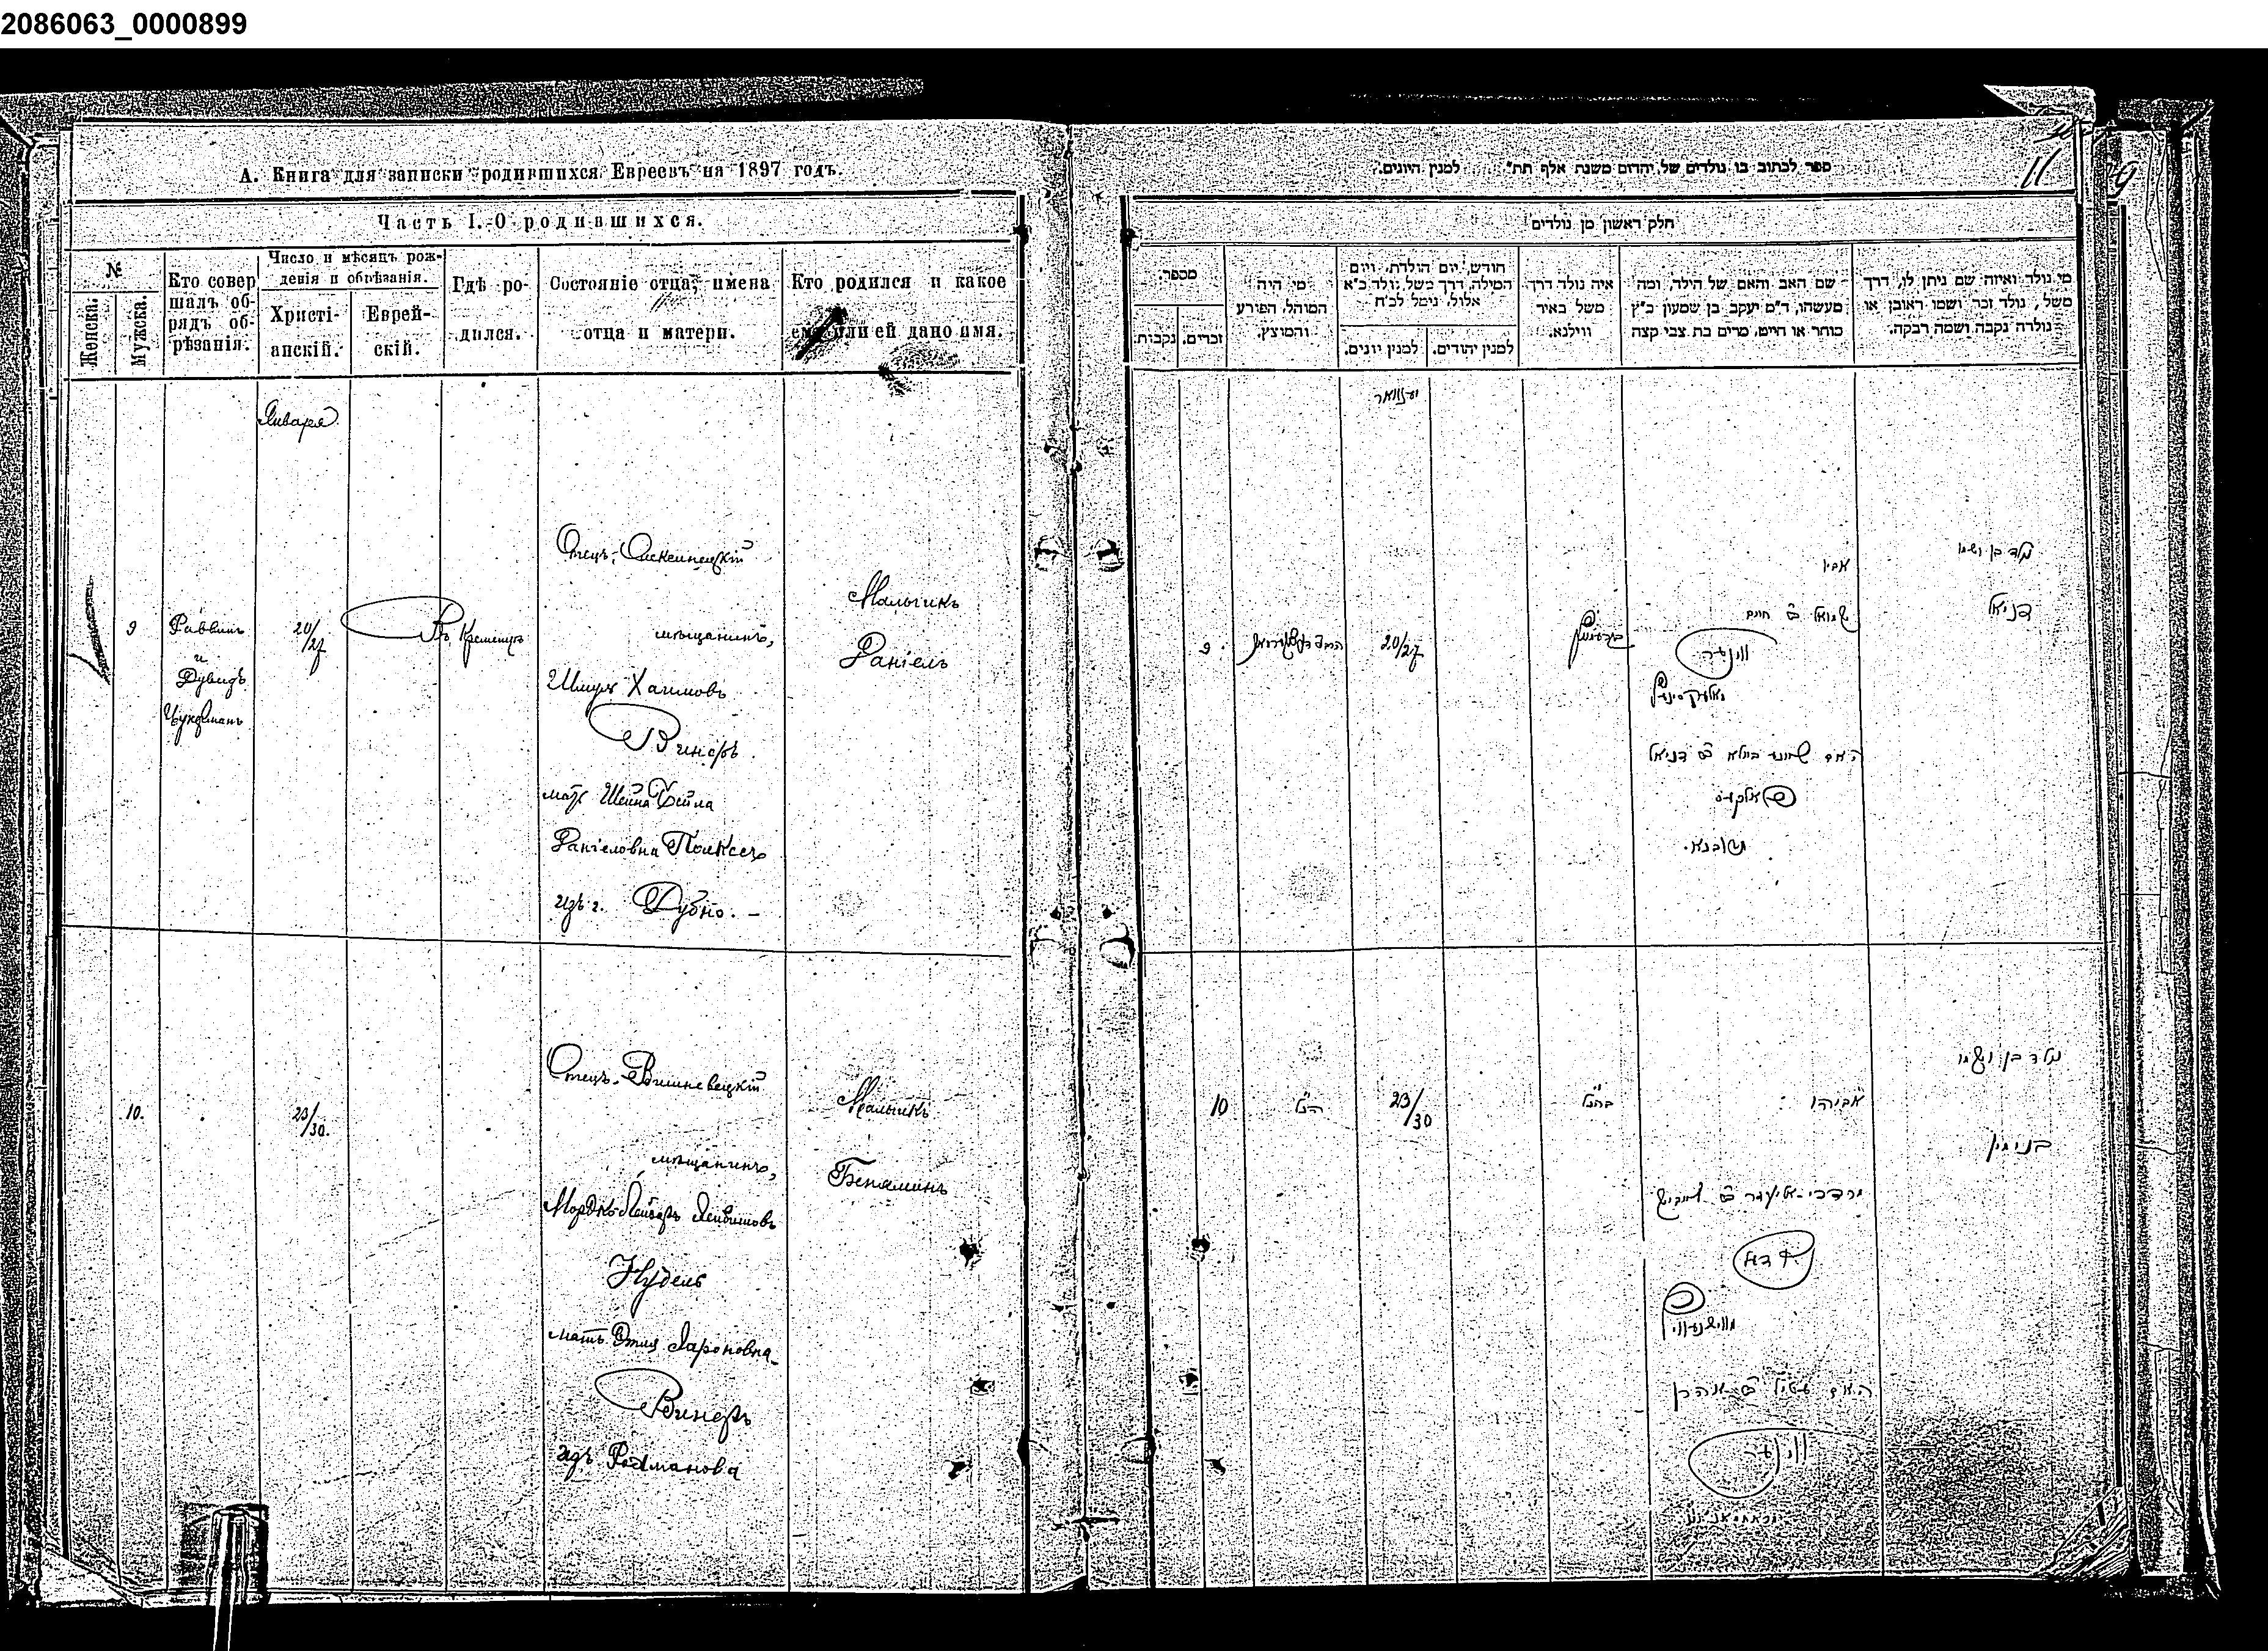 2086063_0000899
А. Книга для записки родившихся Евреевъ на 1897 годъ.
Часть I. О родившихся.
№
Женска.
Мужска.
Кто совер
шалъ об-
рядъ об-
рѣзанія.
Число и мѣсяцъ рож-
денія и обрѣзанія.
Христі-
анскій.
Еврей-
скій.
Гдѣ ро-
дился.
Состояніе отца, имена
отца и матери.
Кто родился и какое
ему или ей дано имя.
Января
9
Раввинъ
и
Дувидъ
Цукерманъ
20/27
Въ Кременцѣ
Отецъ-
мѣщанинъ,
Шмуль Хаимовъ
Винеръ
мать Шейна Бейла
Даніеловна
изъ г. Дубно. —
Мальчикъ
Даніель
10.
23/30.
Отецъ-Вишневецкій
мѣщанинъ,
Мордко-Лейзеръ Лейбишовъ
Нудель
мать Этля Аароновна
Винеръ
изъ Радзивилова
Мальчикъ
Беніаминъ
ספר לכתוב בו נולדים של יהדום משנת אלף תת״ למנין היונים.
11
9
חלק ראשון מן נולדים
מספר.
נקבות
זכרים.
מי היה
המוהל, הפורע
והמוצץ.
חודש, יום הולדת, ויום
המילה, דרך משל, נולד כ״א
אלול, נימל לכ״ח
למנין יונים.
למנין יהודים.
איה נולד דרך
משל באיר
ווילנא.
שם האב והאם של הילד, ומה
מעשהו, ד״מ יעקב בן שמעון כ״ץ
סוחר או חייט, מרים בת צבי קצה
מי נולד ואיזה שם ניתן לו, דרך
משל, נולד זכר ושמו ראובן או
נולדה נקבה ושמה רבקה.
יענוואר
9
20/27
אביו
שמואל ב״ח חיים
ווינער
האם שיינע ביילא ב״ דניאל
מדובנא.
נולד בן ושמו
דניאל
10
הנ״ל
23/30
בהנ״ל
אביהו
מרדכי-אליעזר ב״ר לייביש
האם עטיל ב״ אהרן
ווינער
נולד בן ושמו
בנימין